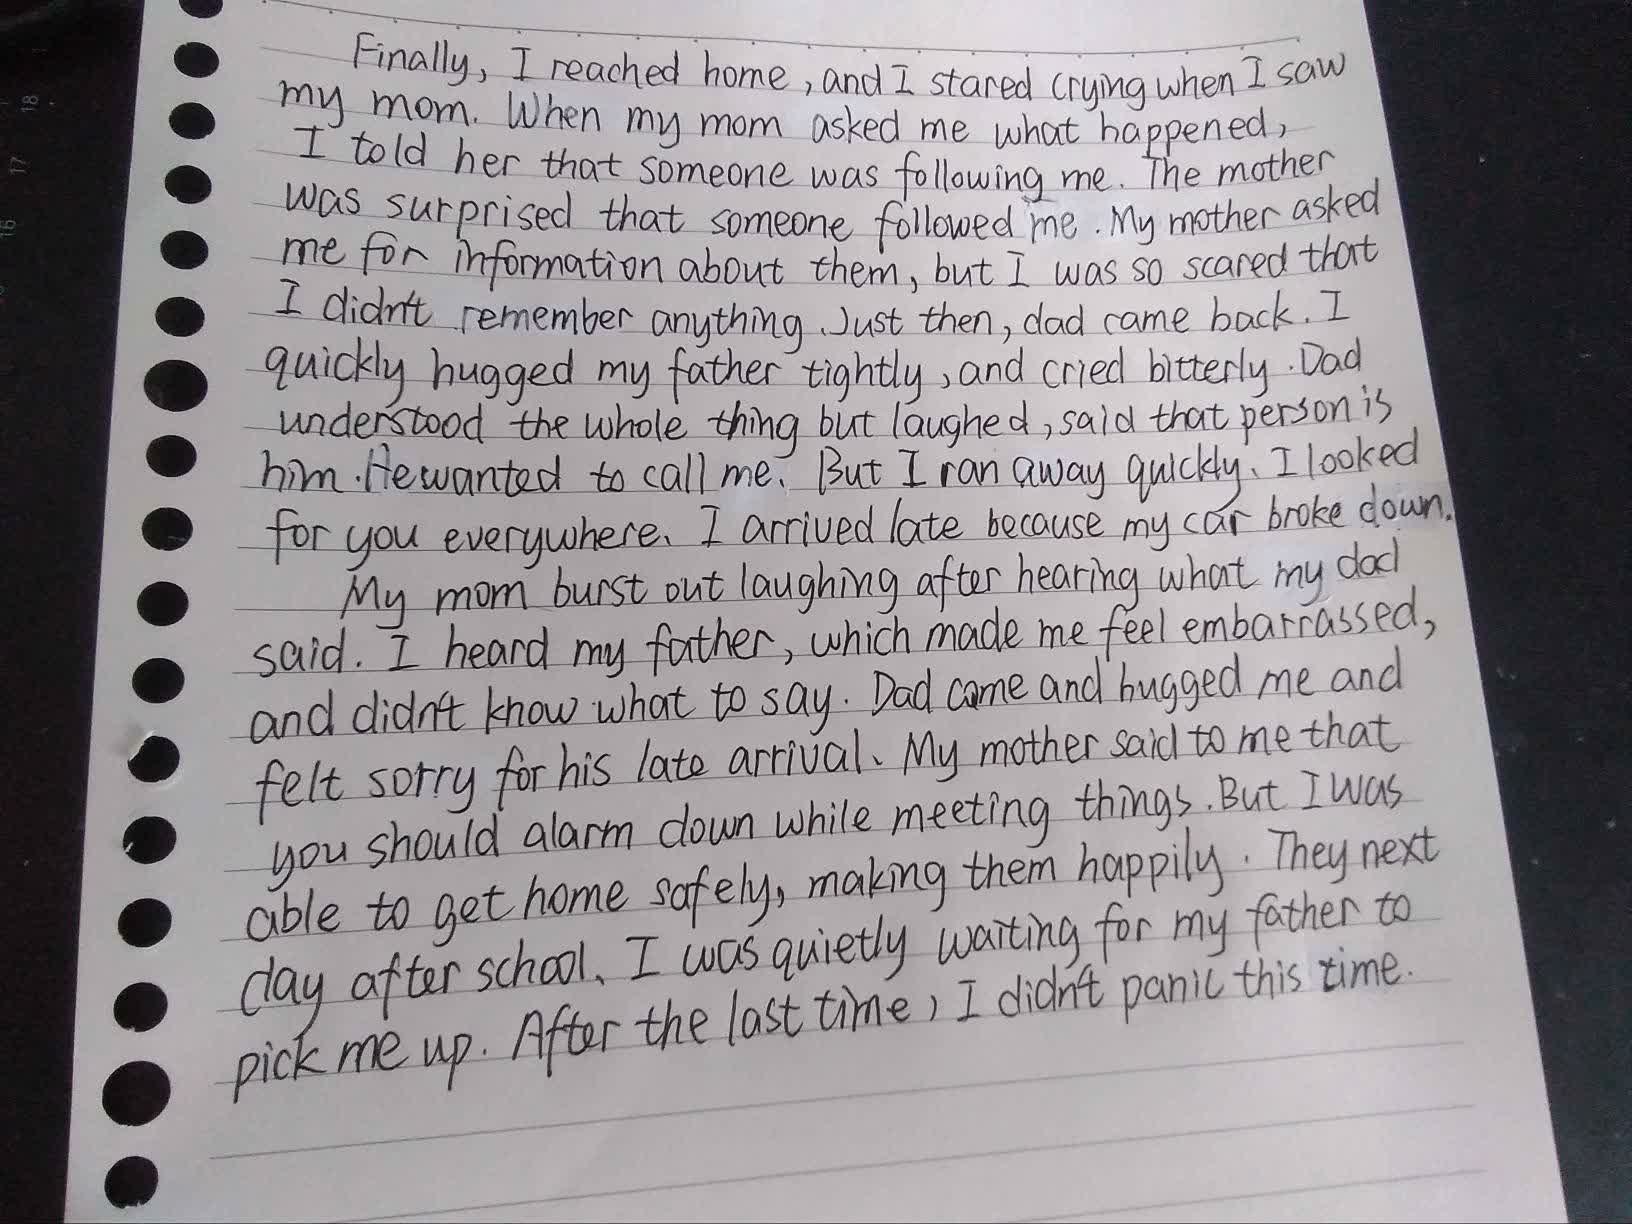 Finally, I reached home, and I stared crying when I saw
my mom. When my mom asked me what happened,
I told her that someone was following me. The mother
was surprised that someone followed me. My mother asked
me for information about them, but I was so scared that
I didn't remember anything. Just then, dad came back. I
quickly hugged my father tightly, and cried bitterly. Dad
understood the whole thing but laughed, said that person is
him. He wanted to call me. But I ran away quickly. I looked
for you everywhere. I arrived late because my car broke down.
My mom burst out laughing after hearing what my dad
said. I heard my father, which made me feel embarrassed,
and didn't know what to say. Dad came and hugged me and
felt sorry for his late arrival. My mother said to me that
you should alarm down while meeting things. But I was
able to get home safely, making them happily. They next
day after school. I was quietly waiting for my father to
pick me up. After the last time, I didn't panic this time.
18
17
16